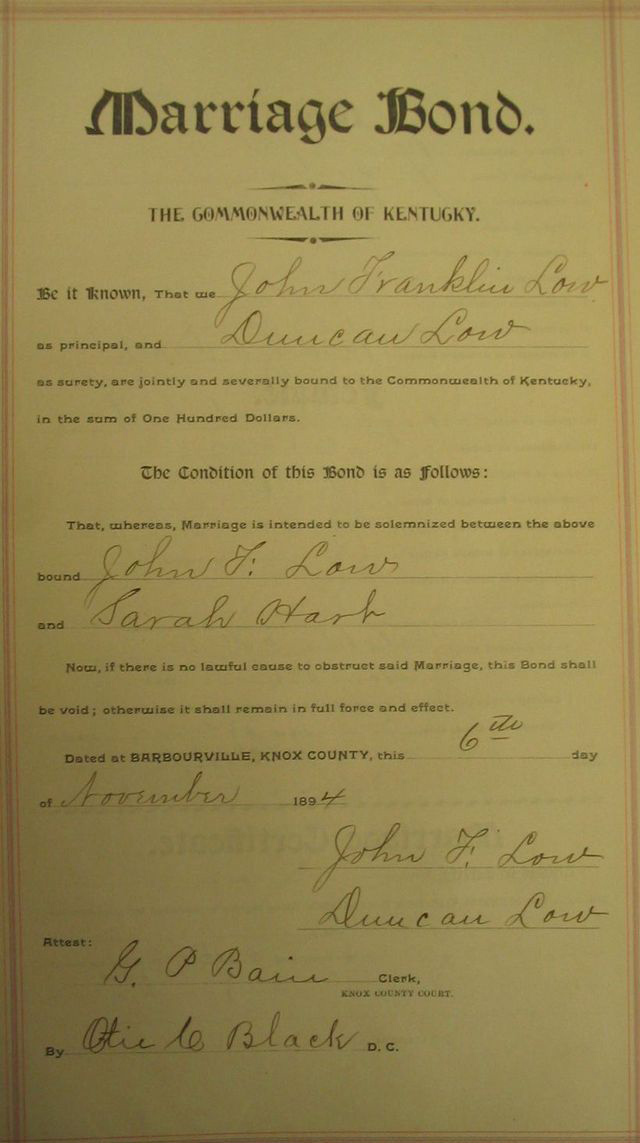 Marriage Bond.
THE COMMONWEALTH OF KENTUCKY.
Be it Known, That we John Franklin Low
as principal, and Duncan Low
as surety, are jointly and severally bound to the Commonwealth of Kentucky,
in the sum of One Hundred Dollars.
The Condition of this Bond is as Follows:
That, whereas, Marriage is intended to be solemnized between the above
bound John F. Low
and Sarah Hart
Now, if there is no lawful cause to obstruct said Marriage, this Bond shall
be void; otherwise it shall remain in full force and effect.
Dated at BARBOURVILLE, KNOX COUNTY, this 6th day
of November 1894
John F. Low
Duncan Low
Attest:
G. P Bain Clerk,
KNOX COUNTY COURT.
By Black D. C.